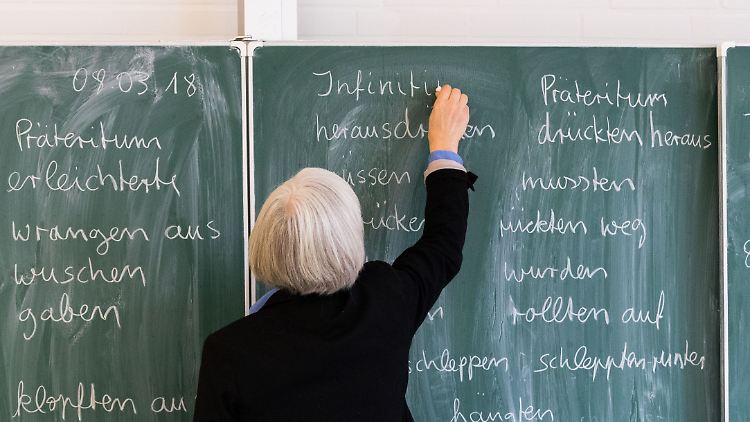 09.03.18
Präteritum
erleichterte
wrangen aus
wuschen
gaben
klopften au
Infiniti
herausdr en
üssen
rücke
schleppen
hängten
Präteritum
drückten heraus
mussten
rückten weg
wurden
rollten auf
schleppten runter